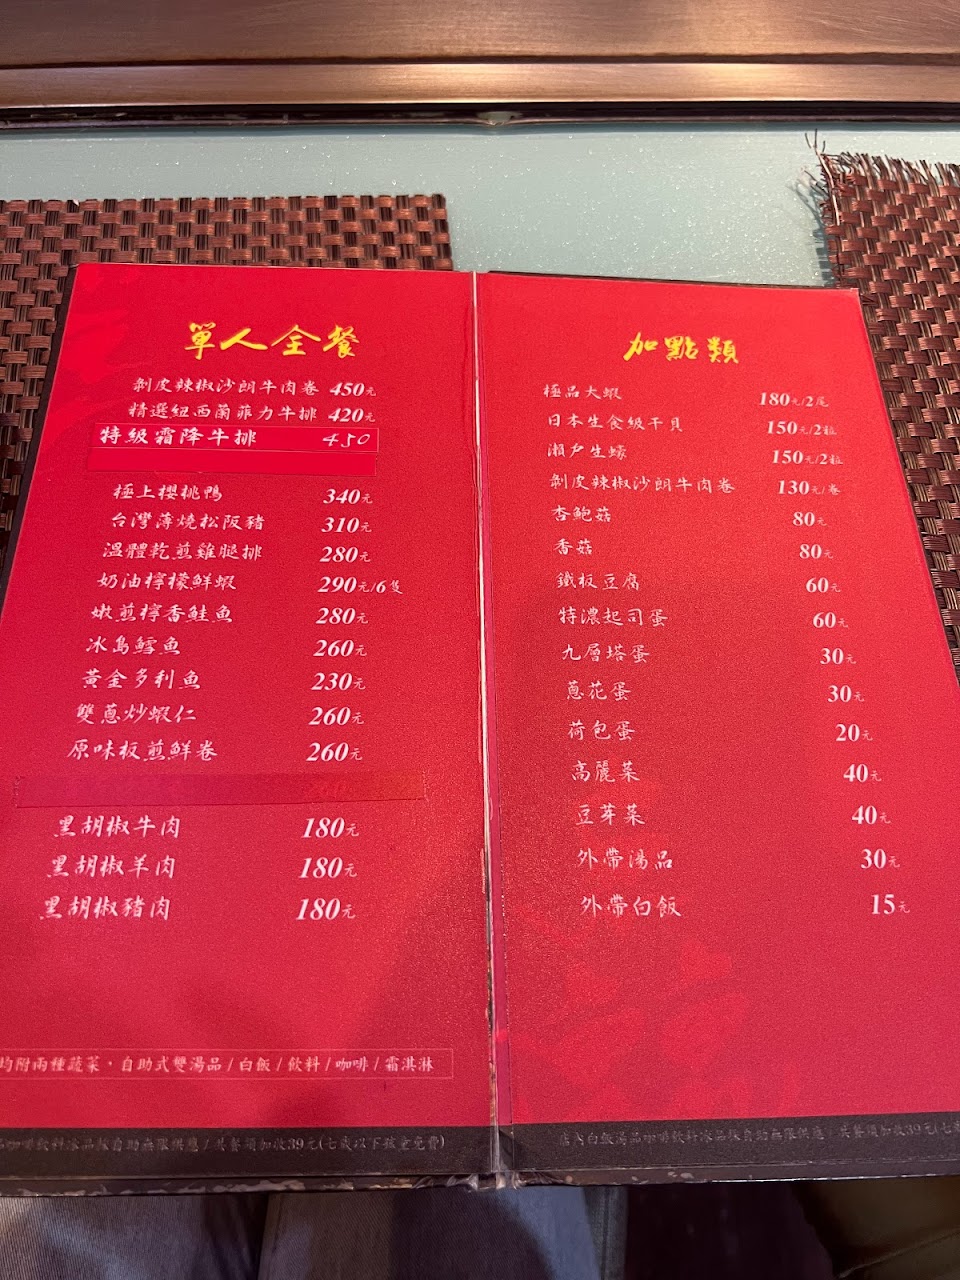 單人全餐
剝皮辣椒沙朗牛肉卷 450元
精選紐西蘭菲力牛排 420元
特級霜降牛排 450
極上櫻桃鴨 340元
台灣薄燒松阪豬 310元
溫體乾煎雞腿排 280元
奶油檸檬鮮蝦 290元/6隻
嫩煎檸香鮭魚 280元
冰島鱈魚 260元
黃金多利魚 230元
雙蔥炒蝦仁 260元
原味板煎鮮卷 260元
黑胡椒牛肉 180元
黑胡椒羊肉 180元
黑胡椒豬肉 180元
均附兩種蔬菜,自助式雙湯品/白飯/飲料/咖啡/霜淇淋
咖啡飲料冰品採自助無限供應/共餐須加收39元(七歲以下孩童免費)
加點類
極品大蝦 180元/2尾
日本生食級干貝 150元/2粒
瀨戶生蠔 150元/2粒
剝皮辣椒沙朗牛肉卷 130元/卷
杏鮑菇 80元
香菇 80元
鐵板豆腐 60元
特濃起司蛋 60元
九層塔蛋 30元
蔥花蛋 30元
荷包蛋 20元
高麗菜 40元
豆芽菜 40元
外帶湯品 30元
外帶白飯 15元
店內白飯湯品咖啡飲料冰品採自助無限供應/共餐須加收39元(七歲